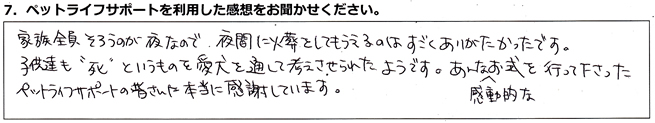 7．ペットライフサポートを利用した感想をお聞かせください。
家族全員そろうのが夜なので、夜間に火葬をしてもらえるのはすごくありがたかったです。
子供達も"死"というものを愛犬を通して考えさせられたようです。あんな感動的なお式を行って下さった
ペットライフサポートの皆さんに本当に感謝しています。